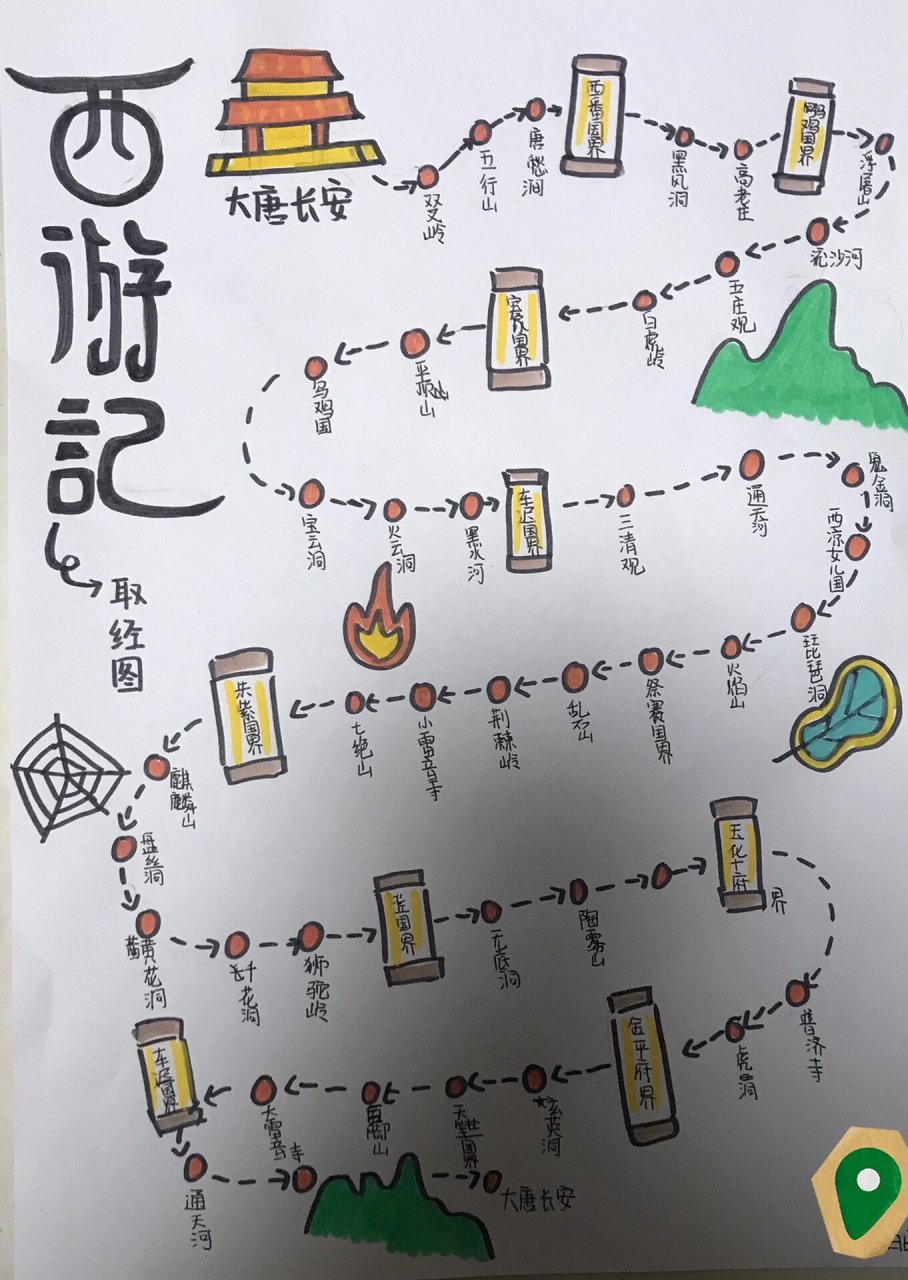 西游記
取经图
大唐长安
双叉岭
五行山
唐愁涧
西番国界
黑风洞
高老庄
乌鸡国界
浮屠山
流沙河
五庄观
白虎岭
宝象国界
平顶山
乌鸡国
宝云洞
火云洞
黑水河
车迟国界
三清观
通天河
金洞
西凉女儿国
琵琶洞
火焰山
祭赛国界
乱石山
荆棘岭
小雷音寺
七绝山
朱紫国界
麒麟山
盘丝洞
黄花洞
花洞
狮驼岭
国界
无底洞
陶雾山
玉化十府
界
普济寺
虎口洞
金平府界
玄英洞
天竺国界
山
大雷音寺
车迟国界
通天河
大唐长安